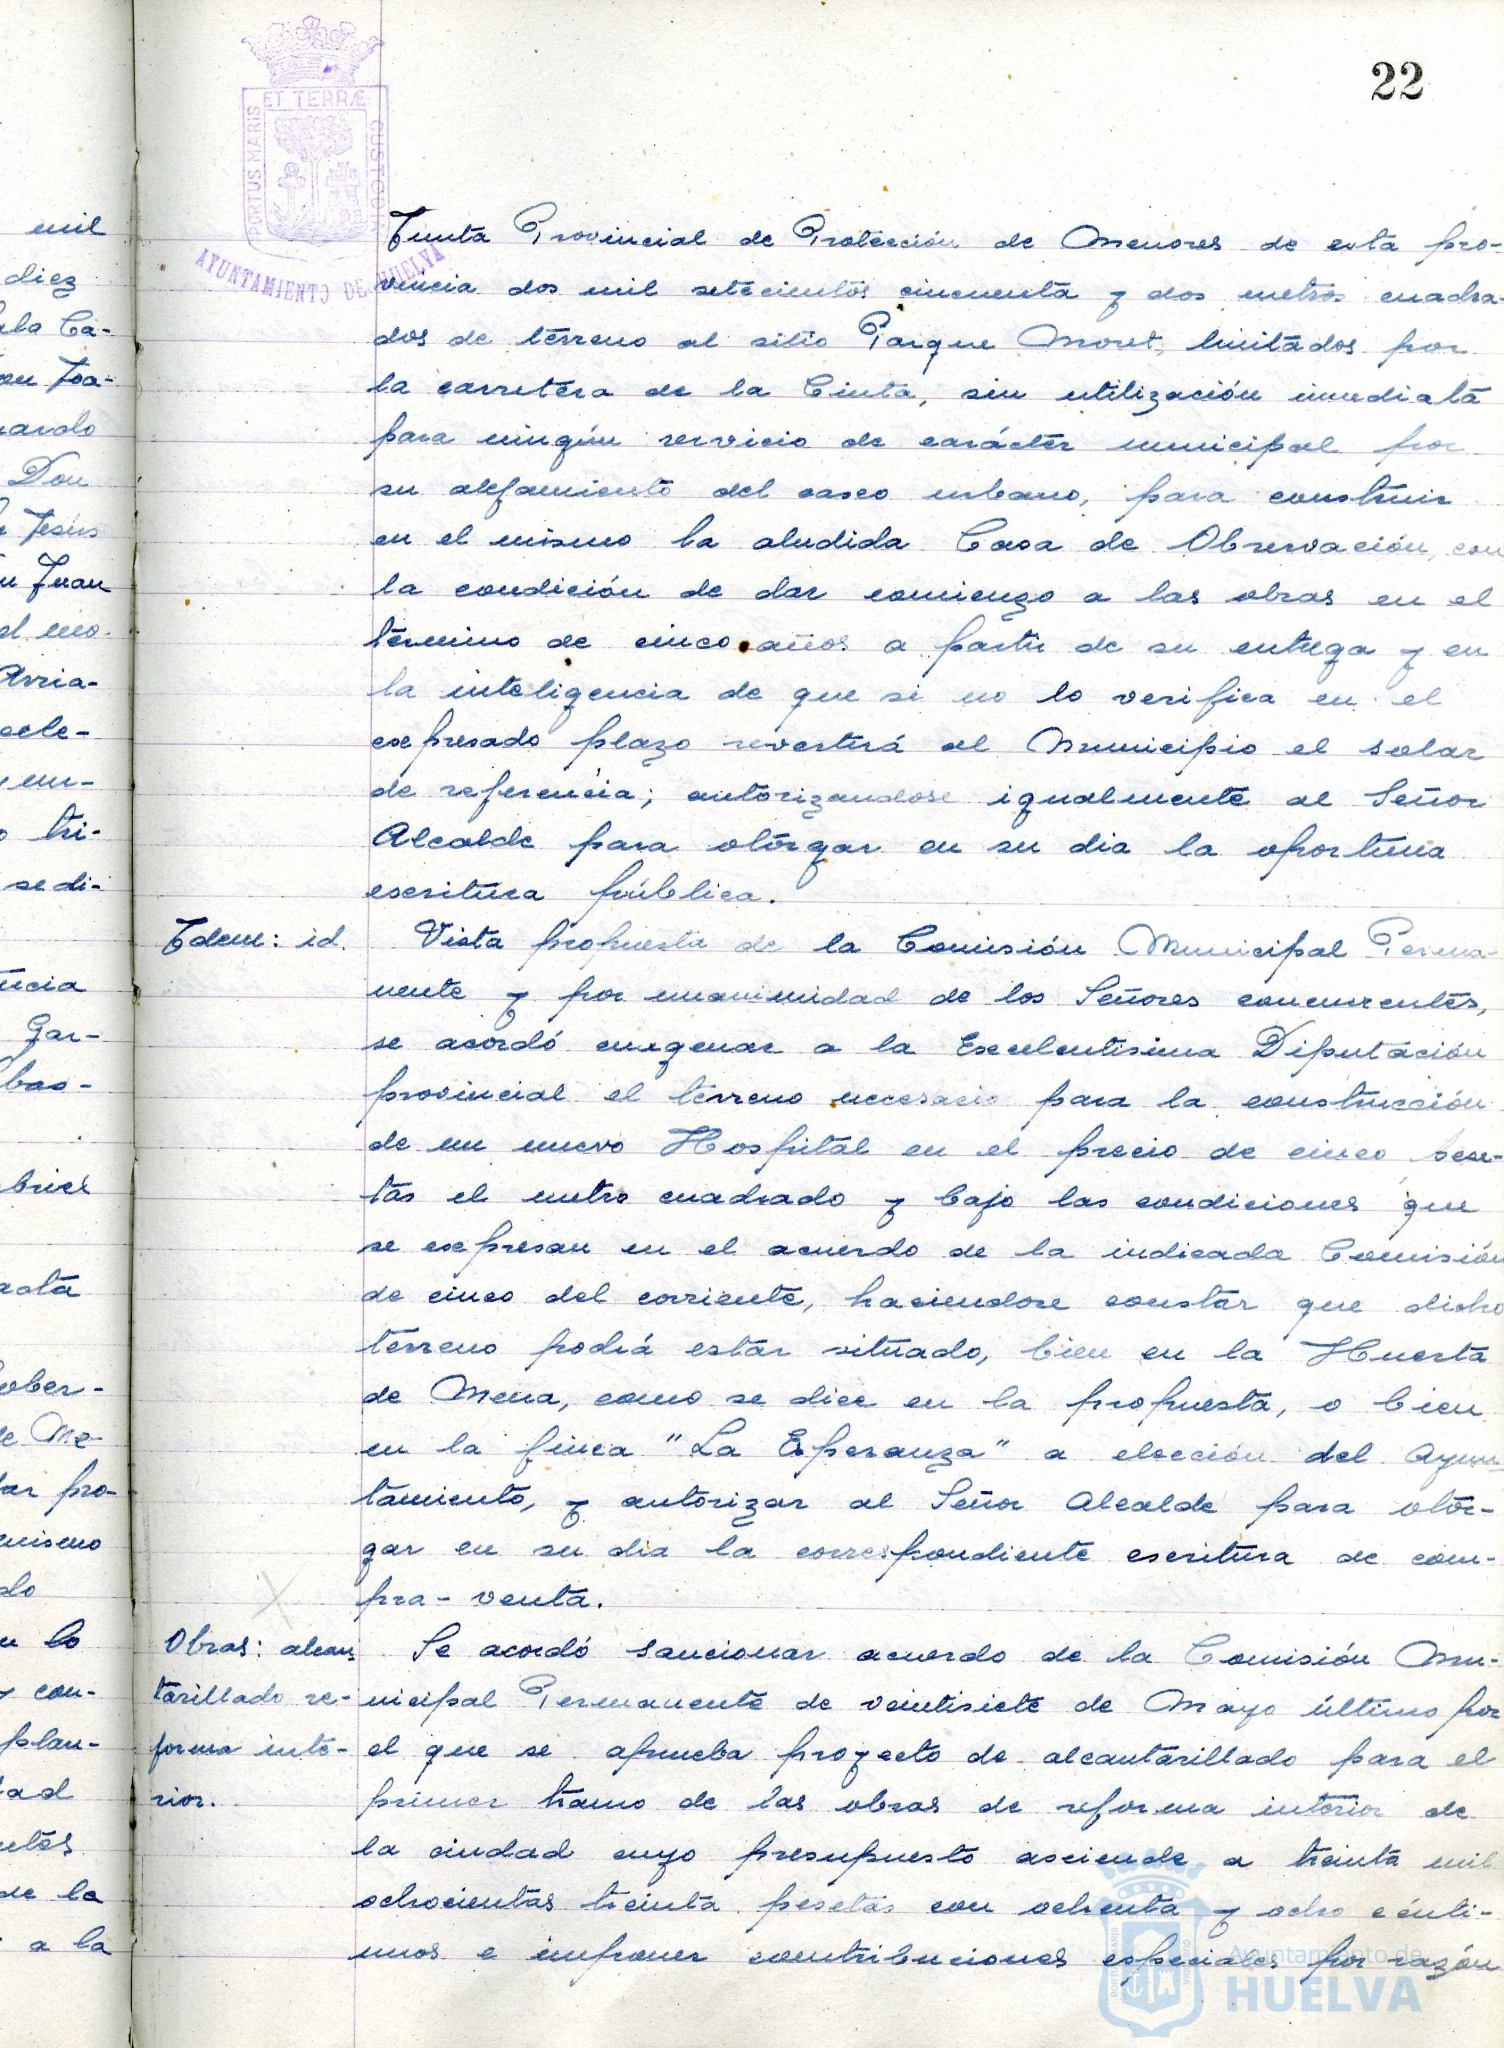 22
PORTUS MARIS ET TERRÆ CUSTODIA
AYUNTAMIENTO DE HUELVA
Junta Provincial de Protección de Menores de esta pro-
vincia dos mil setecientos cincuenta y dos metros cuadra-
dos de terreno al sitio Parque Moret, limitados por
la carretera de la Cinta, sin utilización inmediata
para ningún servicio de carácter municipal por
su alejamiento del casco urbano, para construir
en el mismo la aludida Casa de Observación, con
la condición de dar comienzo a las obras en el
término de cinco años a partir de su entrega y en
la inteligencia de que si no lo verifica en el
expresado plazo revertirá al Municipio el solar
de referencia; autorizandose igualmente al Señor
Alcalde para otorgar en su dia la oportuna
escritura pública.
Idem: id.
Vista propuesta de la Comisión Municipal Perma-
nente y por unanimidad de los Señores concurrentes,
se acordó enagenar a la Excelentisima Diputación
provincial el terreno necesario para la construcción
de un nuevo Hospital en el precio de cinco pese-
tas el metro cuadrado y bajo las condiciones que
se expresan en el acuerdo de la indicada Comisión
de cinco del corriente, haciendose constar que dicho
terreno podrá estar situado, bien en la Huerta
de Mena, como se dice en la propuesta, o bien
en la finca "La Esperanza" a elección del Ayun-
tamiento, y autorizar al Señor Alcalde para otor-
gar en su dia la correspondiente escritura de com-
pra-venta.
Obras: alcan
tarillado re-
forma inte-
rior.
Se acordó sancionar acuerdo de la Comisión Mu-
nicipal Permanente de veintisiete de Mayo último por
el que se aprueba proyecto de alcantarillado para el
primer tramo de las obras de reforma interior de
la ciudad cuyo presupuesto asciende a treinta mil
ochocientas treinta pesetas con ochenta y ocho cénti-
mos e imponer contribuciones especiales por razón
Ayuntamiento de
HUELVA
mil
diez
Ca-
Joa-
Don
Jesús
Juan
Arria-
tri-
se di-
Gar-
de Me-
pro-
mismo
lo
y con-
plan-
de la
a la